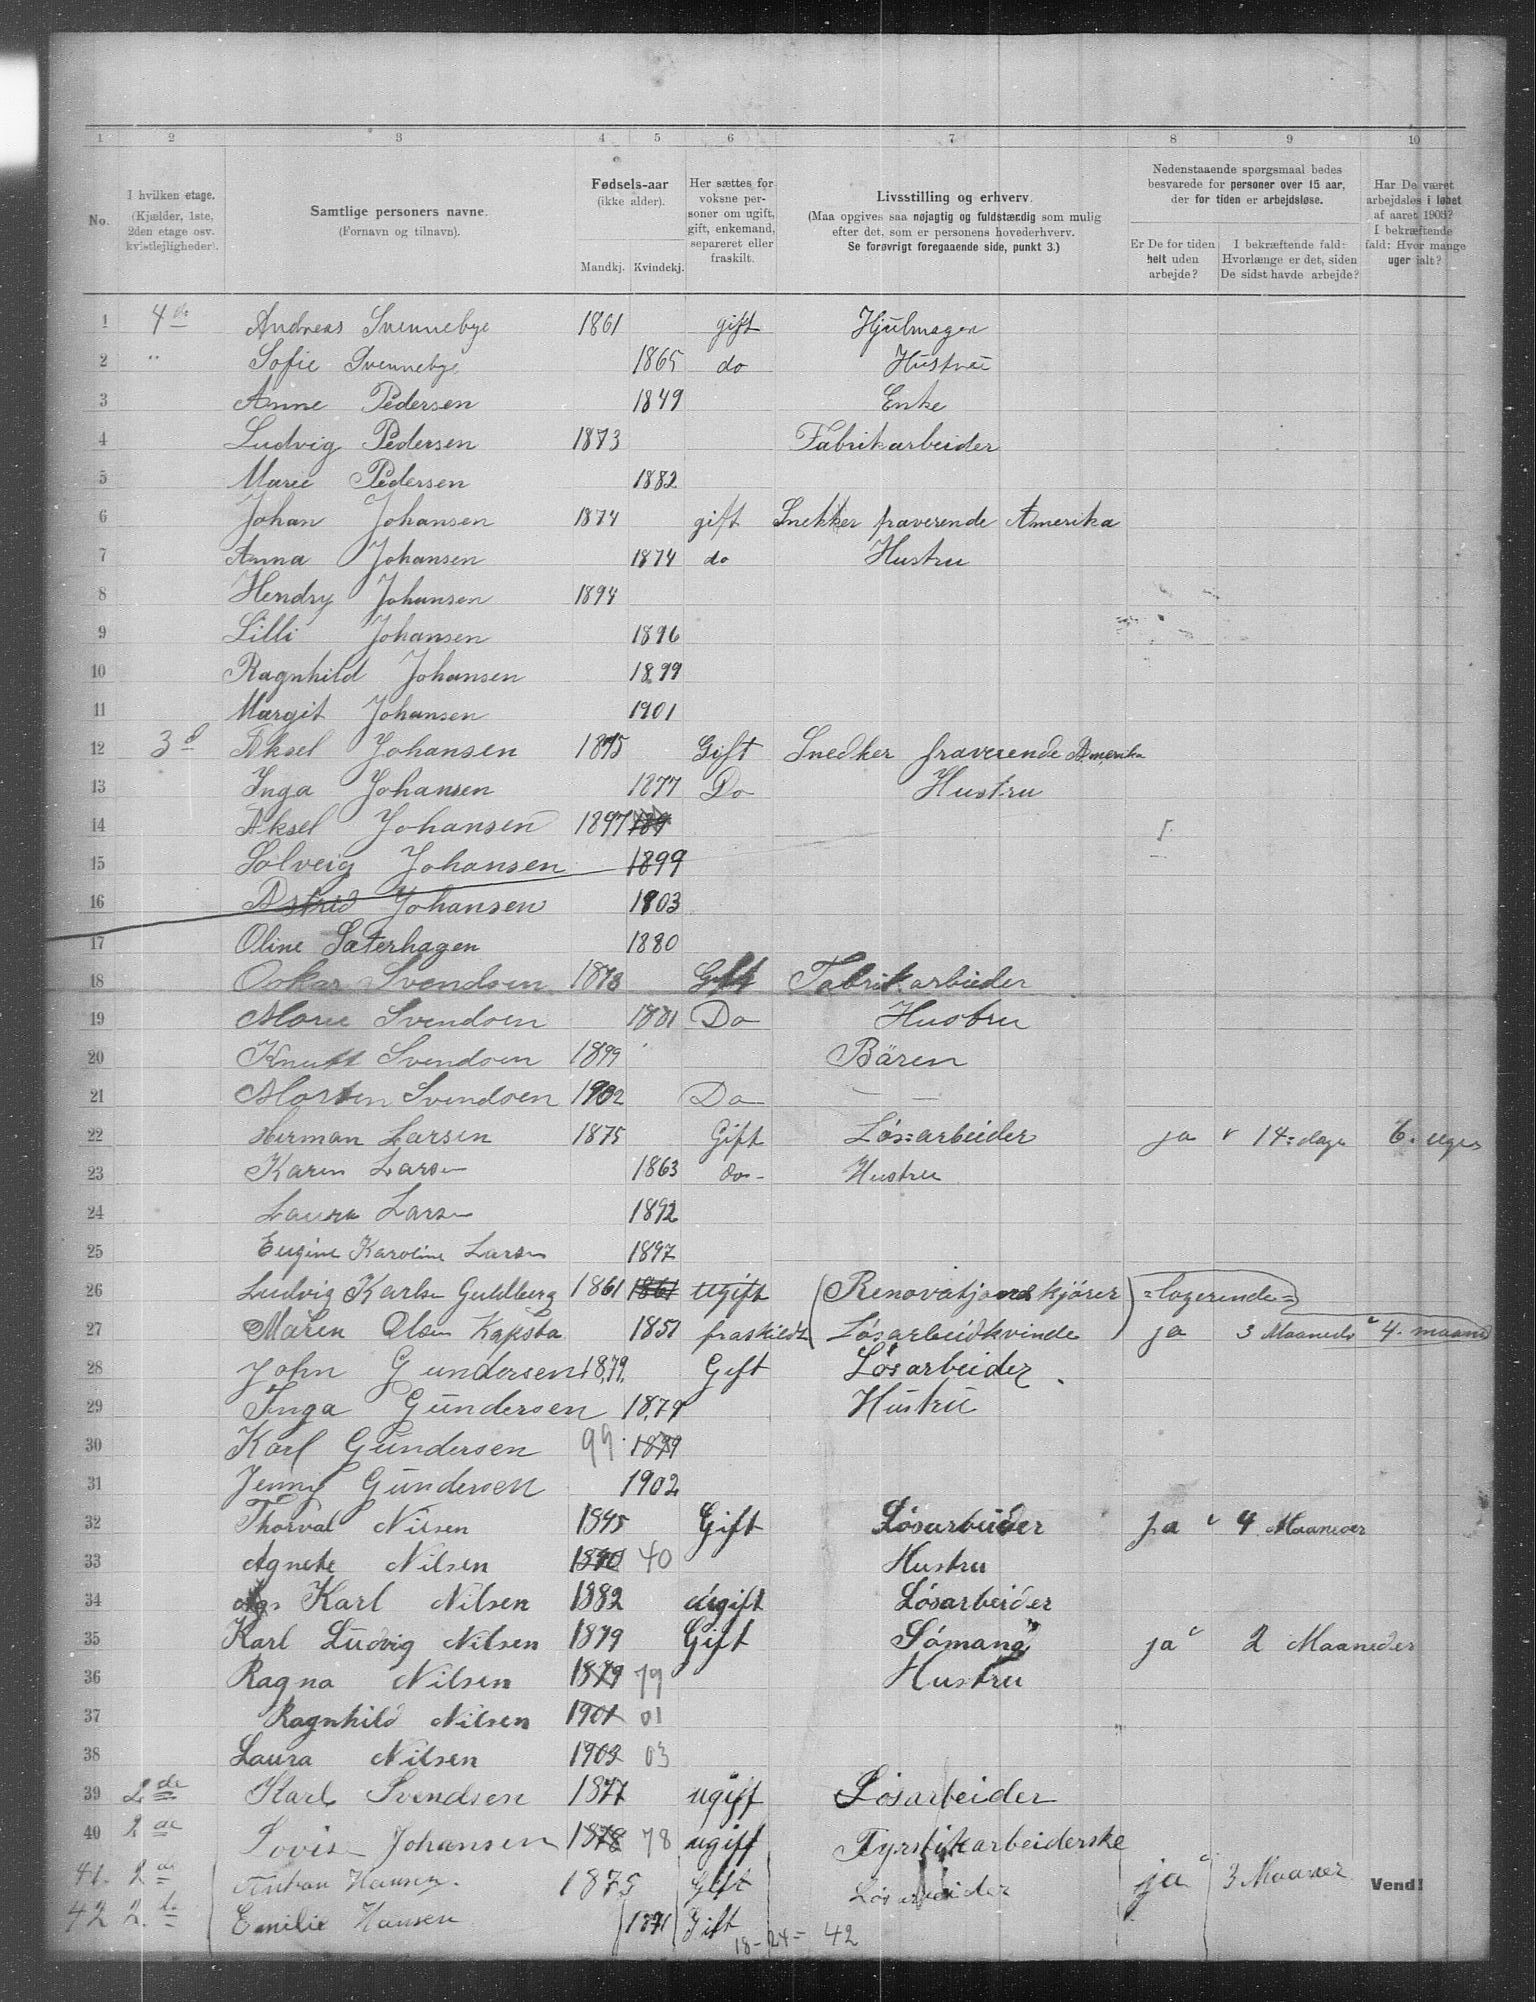 1 2 3 4 5 6 7 8 9 10
No.
I hvilken etage. (Kjælder, 1ste, 2den etage osv. kvistlejligheder).
Samtlige personers navne. (Fornavn og tilnavn).
Fødsels-aar (ikke alder).
Mandkj. Kvindekj.
Her sættes for voksne personer om ugift, gift, enkemand, separeret eller fraskilt.
Livsstilling og erhverv.
(Maa opgives saa nøjagtig og fuldstændig som mulig efter det, som er personens hovederhverv. Se forøvrigt foregaaende side, punkt 3.)
Nedenstaaende spørgsmaal bedes besvarede for personer over 15 aar, der for tiden er arbejdsløse.
Er De for tiden helt uden arbejde?
I bekræftende fald: Hvorlænge er det, siden De sidst havde arbejde?
Har De været arbejdsløs i løbet af aaret 1903? I bekræftende fald: Hvor mange uger ialt?
1 4de Andreas Svennebye 1861 gift Hjulmager
2 " Sofie Svennebye 1865 do Hustru
3 Anne Pedersen 1849 Enke
4 Ludvig Pedersen 1873 Fabrikarbeider
5 Marie Pedersen 1882
6 Johan Johansen 1874 gift Snekker fraverende Amerika
7 Anna Johansen 1874 do Hustru
8 Hendry Johansen 1894
9 Lilli Johansen 1896
10 Ragnhild Johansen 1899
11 Margit Johansen 1901
12 3d Aksel Johansen 1875 Gift Snedker fraverende Amerika
13 Inga Johansen 1877 Do Hustru
14 Aksel Johansen 1897 189
15 Solveig Johansen 1899
16 Astrid Johansen 1903
17 Oline Sæterhagen 1880
18 Oskar Svendsen 1873 Gift Fabrikarbeider
19 Marie Svendsen 1881 Do Hustru
20 Knutt Svendsen 1899 Bären
21 Morten Svendsen 1902 Do —
22 Herman Larsen 1875 Gift Løs=arbeider ja 14=dage 6. uger
23 Karen Larsen 1863 do- Hustru
24 Laura Larsen 1892
25 Eugine Karoline Larsen 1897
26 Ludvig Karlsen Guldberg 1861 1861 ugift (Renovatjonskjører) =logerende=
27 Maren Olsen Kapsta 1851 fraskildt Løsarbeidkvinde ja 3 Maaneder 4. maaned
28 John Gundersen 1879. Gift Løsarbeider
29 Inga Gundersen 1879 Hustru
30 Karl Gundersen 99 1899
31 Jenny Gundersen 1902
32 Thorval Nilsen 1845 Gift Løsarbeider ja 4 Maaneder
33 Agnete Nilsen 1840 40 Hustru
34 Karl Nilsen 1882 ugift Løsarbeider
35 Karl Ludvig Nilsen 1879 Gift Sømand ja 2 Maaneder
36 Ragna Nilsen 1879 79 Hustru
37 Ragnhild Nilsen 1901 01
38 Laura Nilsen 1903 03
39 2de Karl Svendsen 1877 ugift Løsarbeider
40 2de Lovise Johansen 1878 78 ugift Fyrstikarbeiderske
41. 2de Anton Hansen. 1875 Gift Løsarbeider ja 3 Maaner
Vend!
42 2de Emilie Hansen 1871 Gift
18-24= 42